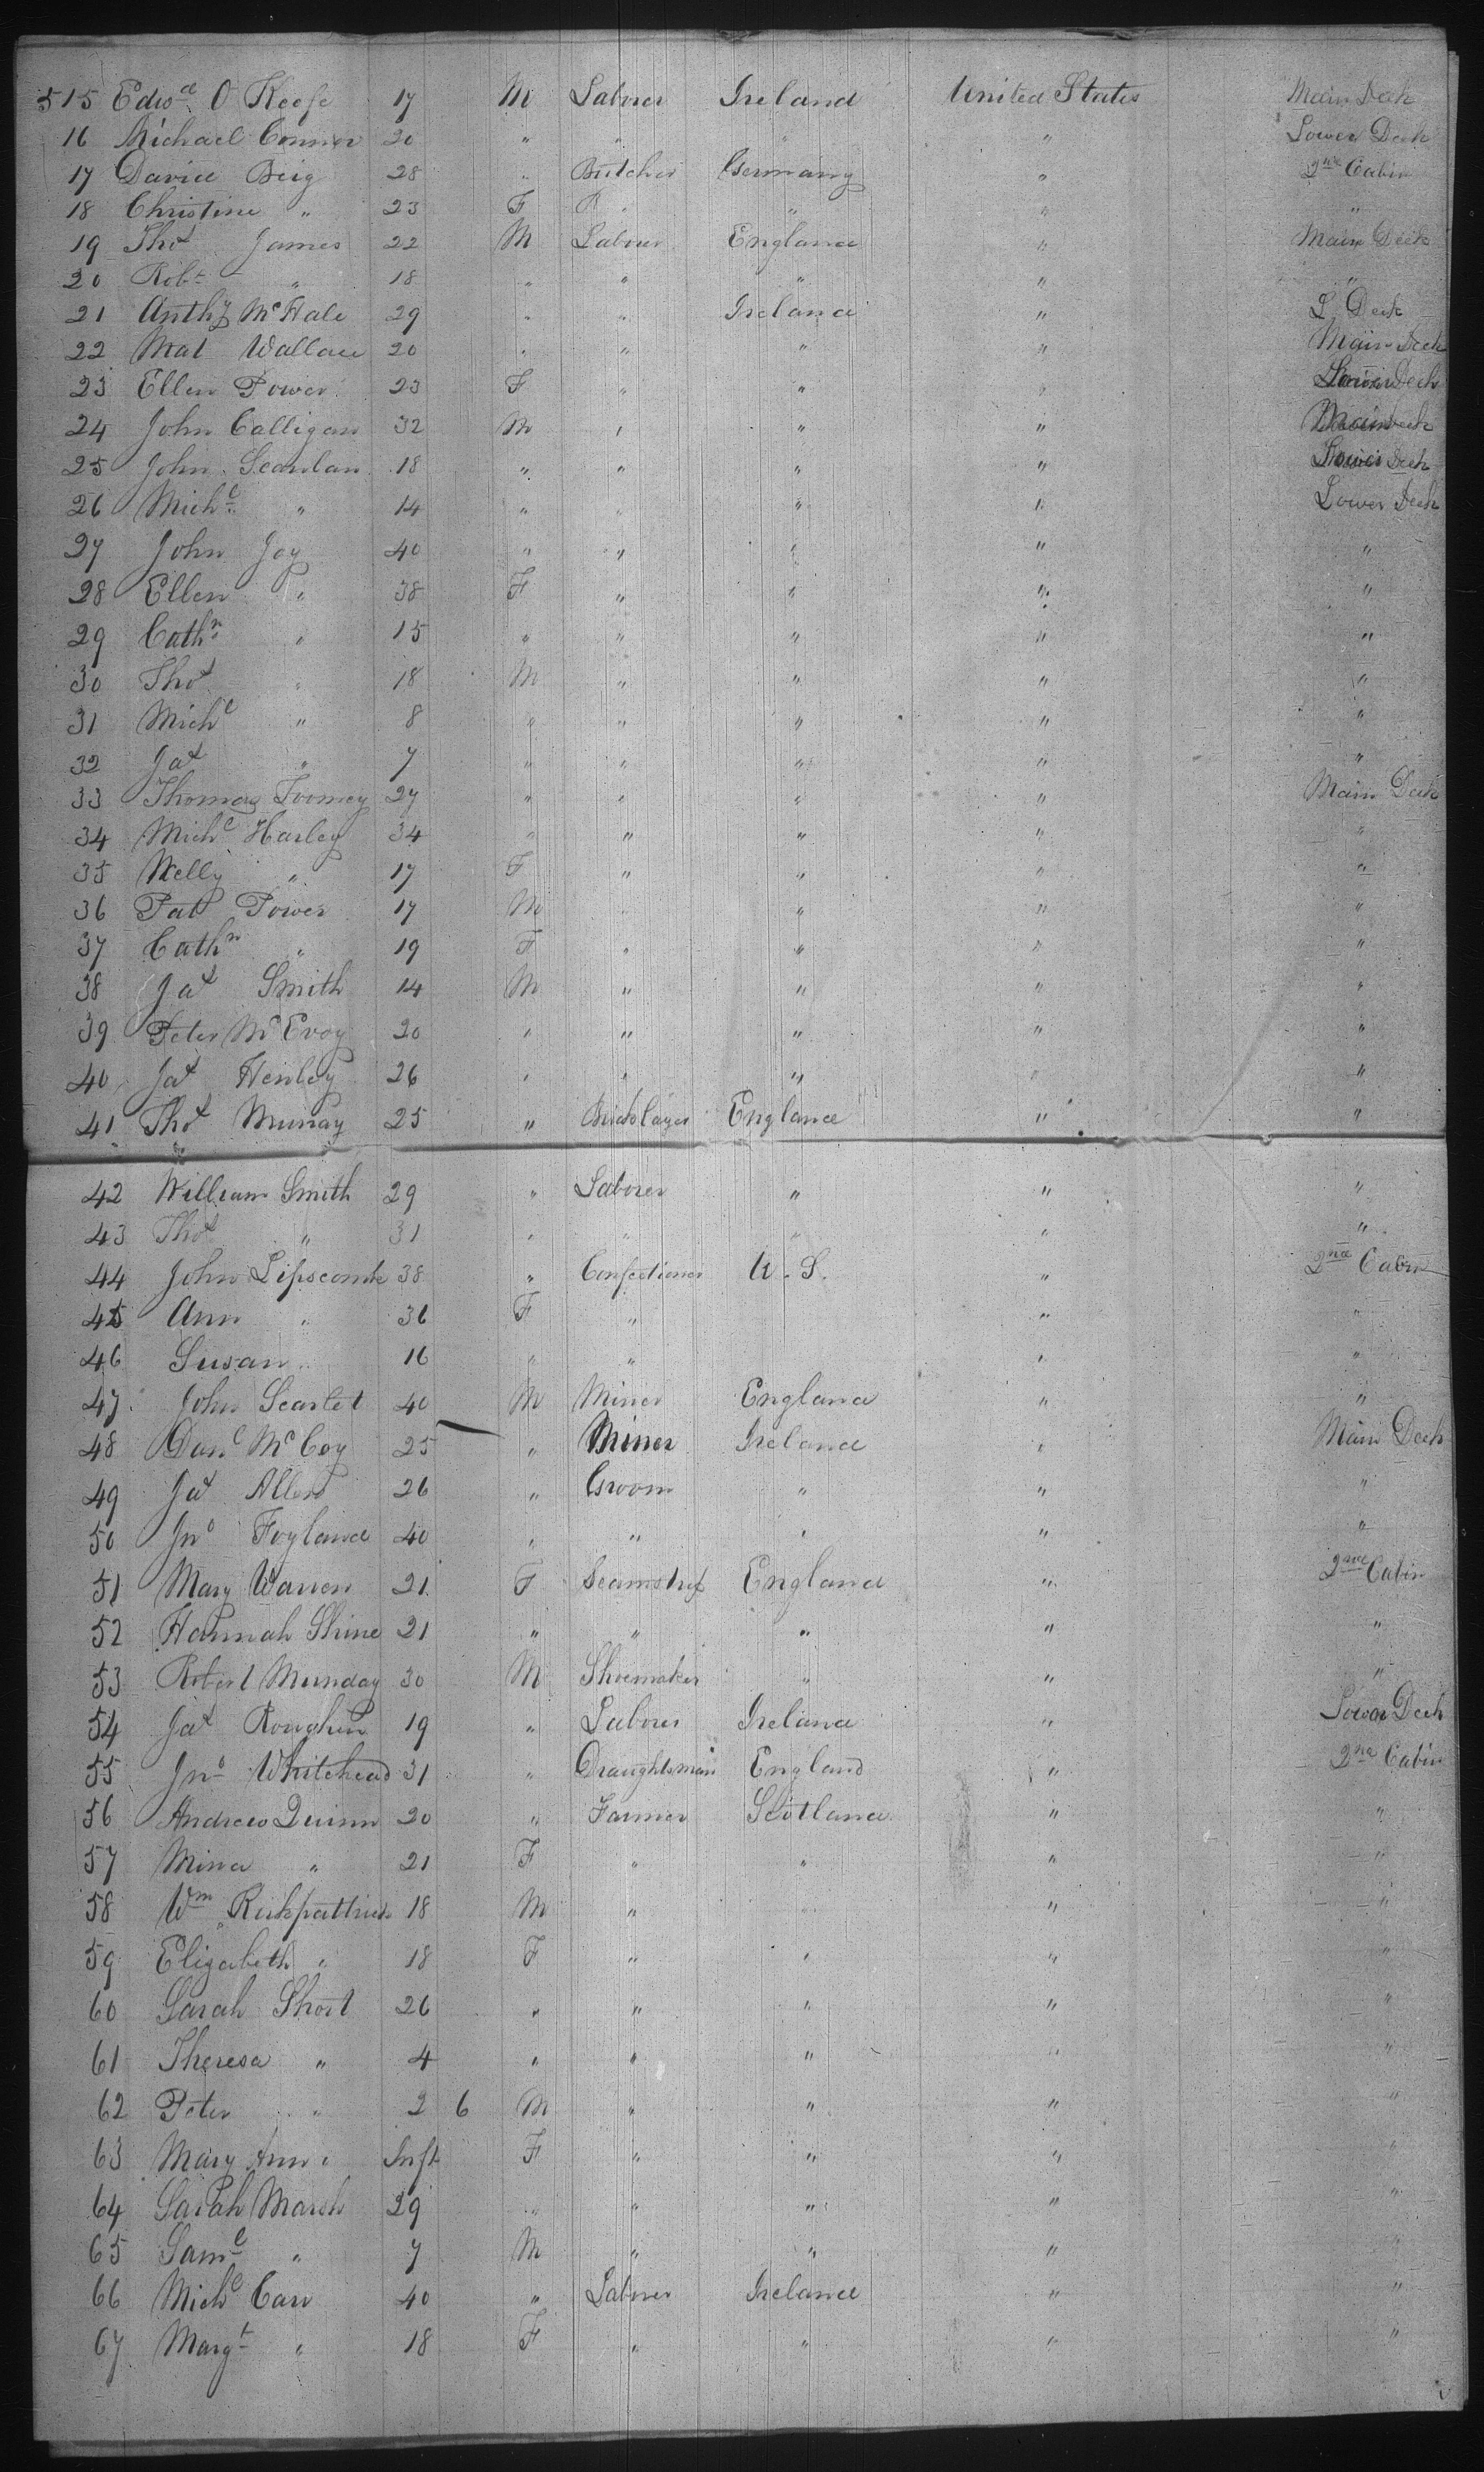 515 Edwd O Keefe 17 M Laborer Ireland United States Main Deck
16 Michael Connor 20 " " " " Lower Deck
17 David Beig 28 " Butcher Germany " 2nd Cabin
18 Christine " 23 F " " " "
19 Thos James 22 M Laborer England " Main Deck
20 Robt " 18 " " " " "
21 Anthy McHale 29 " " Ireland " L Deck
22 Mat Wallace 20 " " " " Main Deck
23 Ellen Power 23 F " " " Lower Deck
24 John Calligan 32 M " " " Main Deck
25 John Scanlan 18 " " " " Lower Deck
26 Michl " 14 " " " " Lower Deck
27 John Joy 40 " " " " "
28 Ellen " 38 F " " " "
29 Cathn " 15 " " " " "
30 Thos " 18 M " " " "
31 Michl " 8 " " " " "
32 Jas " 7 " " " " "
33 Thomas Toomey 27 " " " " Main Deck
34 Michl Harley 34 " " " " "
35 Nelly " 17 F " " " "
36 Pat Power 17 M " " " "
37 Cathn " 19 F " " " "
38 Jas Smith 14 M " " " "
39 Peter McEvoy 20 " " " " "
40 Jas Henley 26 " " " " "
41 Thos Murray 25 " Bricklayer England " "
42 William Smith 29 " Laborer " " "
43 Thos " 31 " " " " "
44 John Lipscomb 38 " Confectioner U.S. " 2nd Cabin
45 Ann " 36 F " " "
46 Susan " 16 " " " "
47 John Scarlet 40 M Miner England " "
48 Danl McCoy 25 " Miner Ireland " Main Deck
49 Jas Allen 26 " Groom " " "
50 Jno Foyland 40 " " " " "
51 Mary Warren 21 F Seamstress England " 2nd Cabin
52 Hannah Shine 21 " " " " "
53 Robert Munday 30 M Shoemaker " " "
54 Jas Roughin 19 " Laborer Ireland " Lower Deck
55 Jno Whitehead 31 " Draughtsman England " 2nd Cabin
56 Andrew Quinn 20 " Farmer Scotland " "
57 Mina " 21 F " " " "
58 Wm Kirkpattrick 18 M " " " "
59 Elizabeth " 18 F " " " "
60 Sarah Short 26 " " " " "
61 Theresa " 4 " " " " "
62 Peter " 2 6 M " " " "
63 Mary Ann " Inft F " " " "
64 Sarah Marsh 29 " " " " "
65 Saml " 7 M " " " "
66 Michl Carr 40 " Laborer Ireland " "
67 Margt " 18 F " " " "